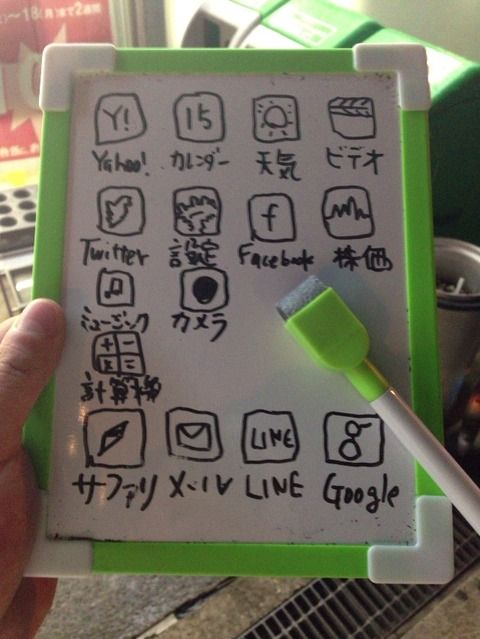 ~18(月)まで2週
Y! 15
Yahoo! カレンダー 天気 ビデオ
f
Twitter 設定 Facebook 株価
ミュージック カメラ
+ - × =
計算機
LINE g
サファリ メール LINE Google